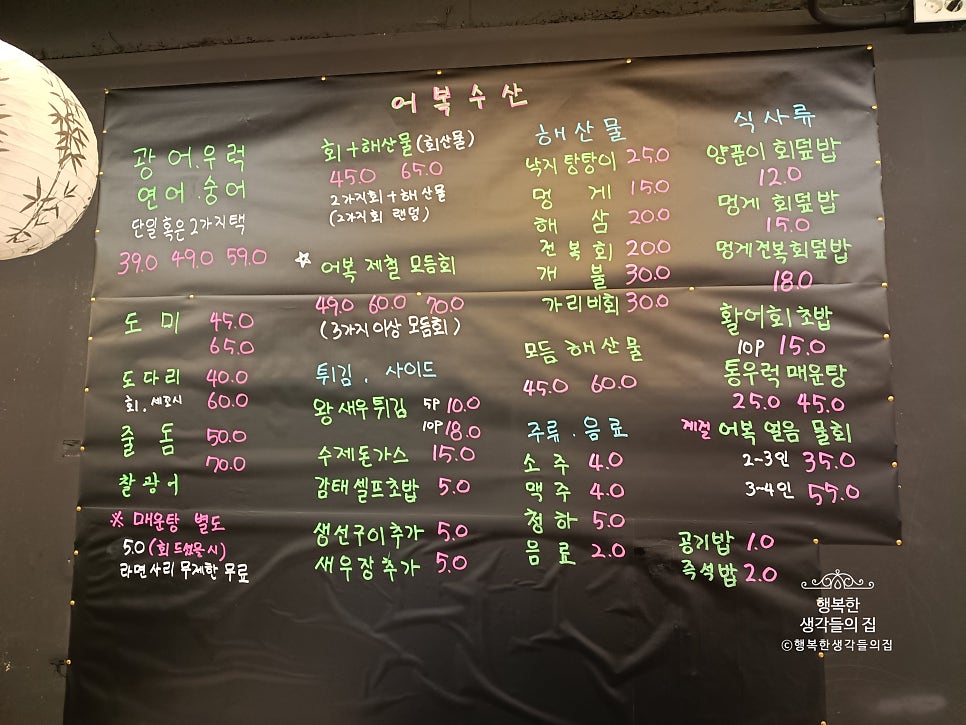 어복수산
광어.우럭
연어.숭어
단일 혹은 2가지택
39.0 49.0 59.0
도미 45.0
65.0
도다리 40.0
회.세꼬시 60.0
줄돔 50.0
70.0
찰광어
※ 매운탕 별도
5.0 (회 드셨을시)
라면사리 무제한 무료
회+해산물 (회산물)
45.0 65.0
2가지회+해산물
(2가지회 랜덤)
☆ 어복 제철 모듬회
49.0 60.0 70.0
(3가지이상 모듬회)
튀김. 사이드
왕새우튀김 5P 10.0
10P 18.0
수제돈가스 15.0
감태셀프초밥 5.0
생선구이추가 5.0
새우장추가 5.0
해산물
낙지탕탕이 25.0
멍게 15.0
해삼 20.0
전복회 20.0
개불 30.0
가리비회 30.0
모듬 해산물
45.0 60.0
주류.음료
소주 4.0
맥주 4.0
청하 5.0
음료 2.0
식사류
양푼이 회덮밥
12.0
멍게 회덮밥
15.0
멍게전복회덮밥
18.0
활어회초밥
10P 15.0
통우럭매운탕
25.0 45.0
계절 어복 얼음 물회
2~3인 35.0
3~4인 55.0
공기밥 1.0
즉석밥 2.0
행복한
생각들의 집
©행복한생각들의집